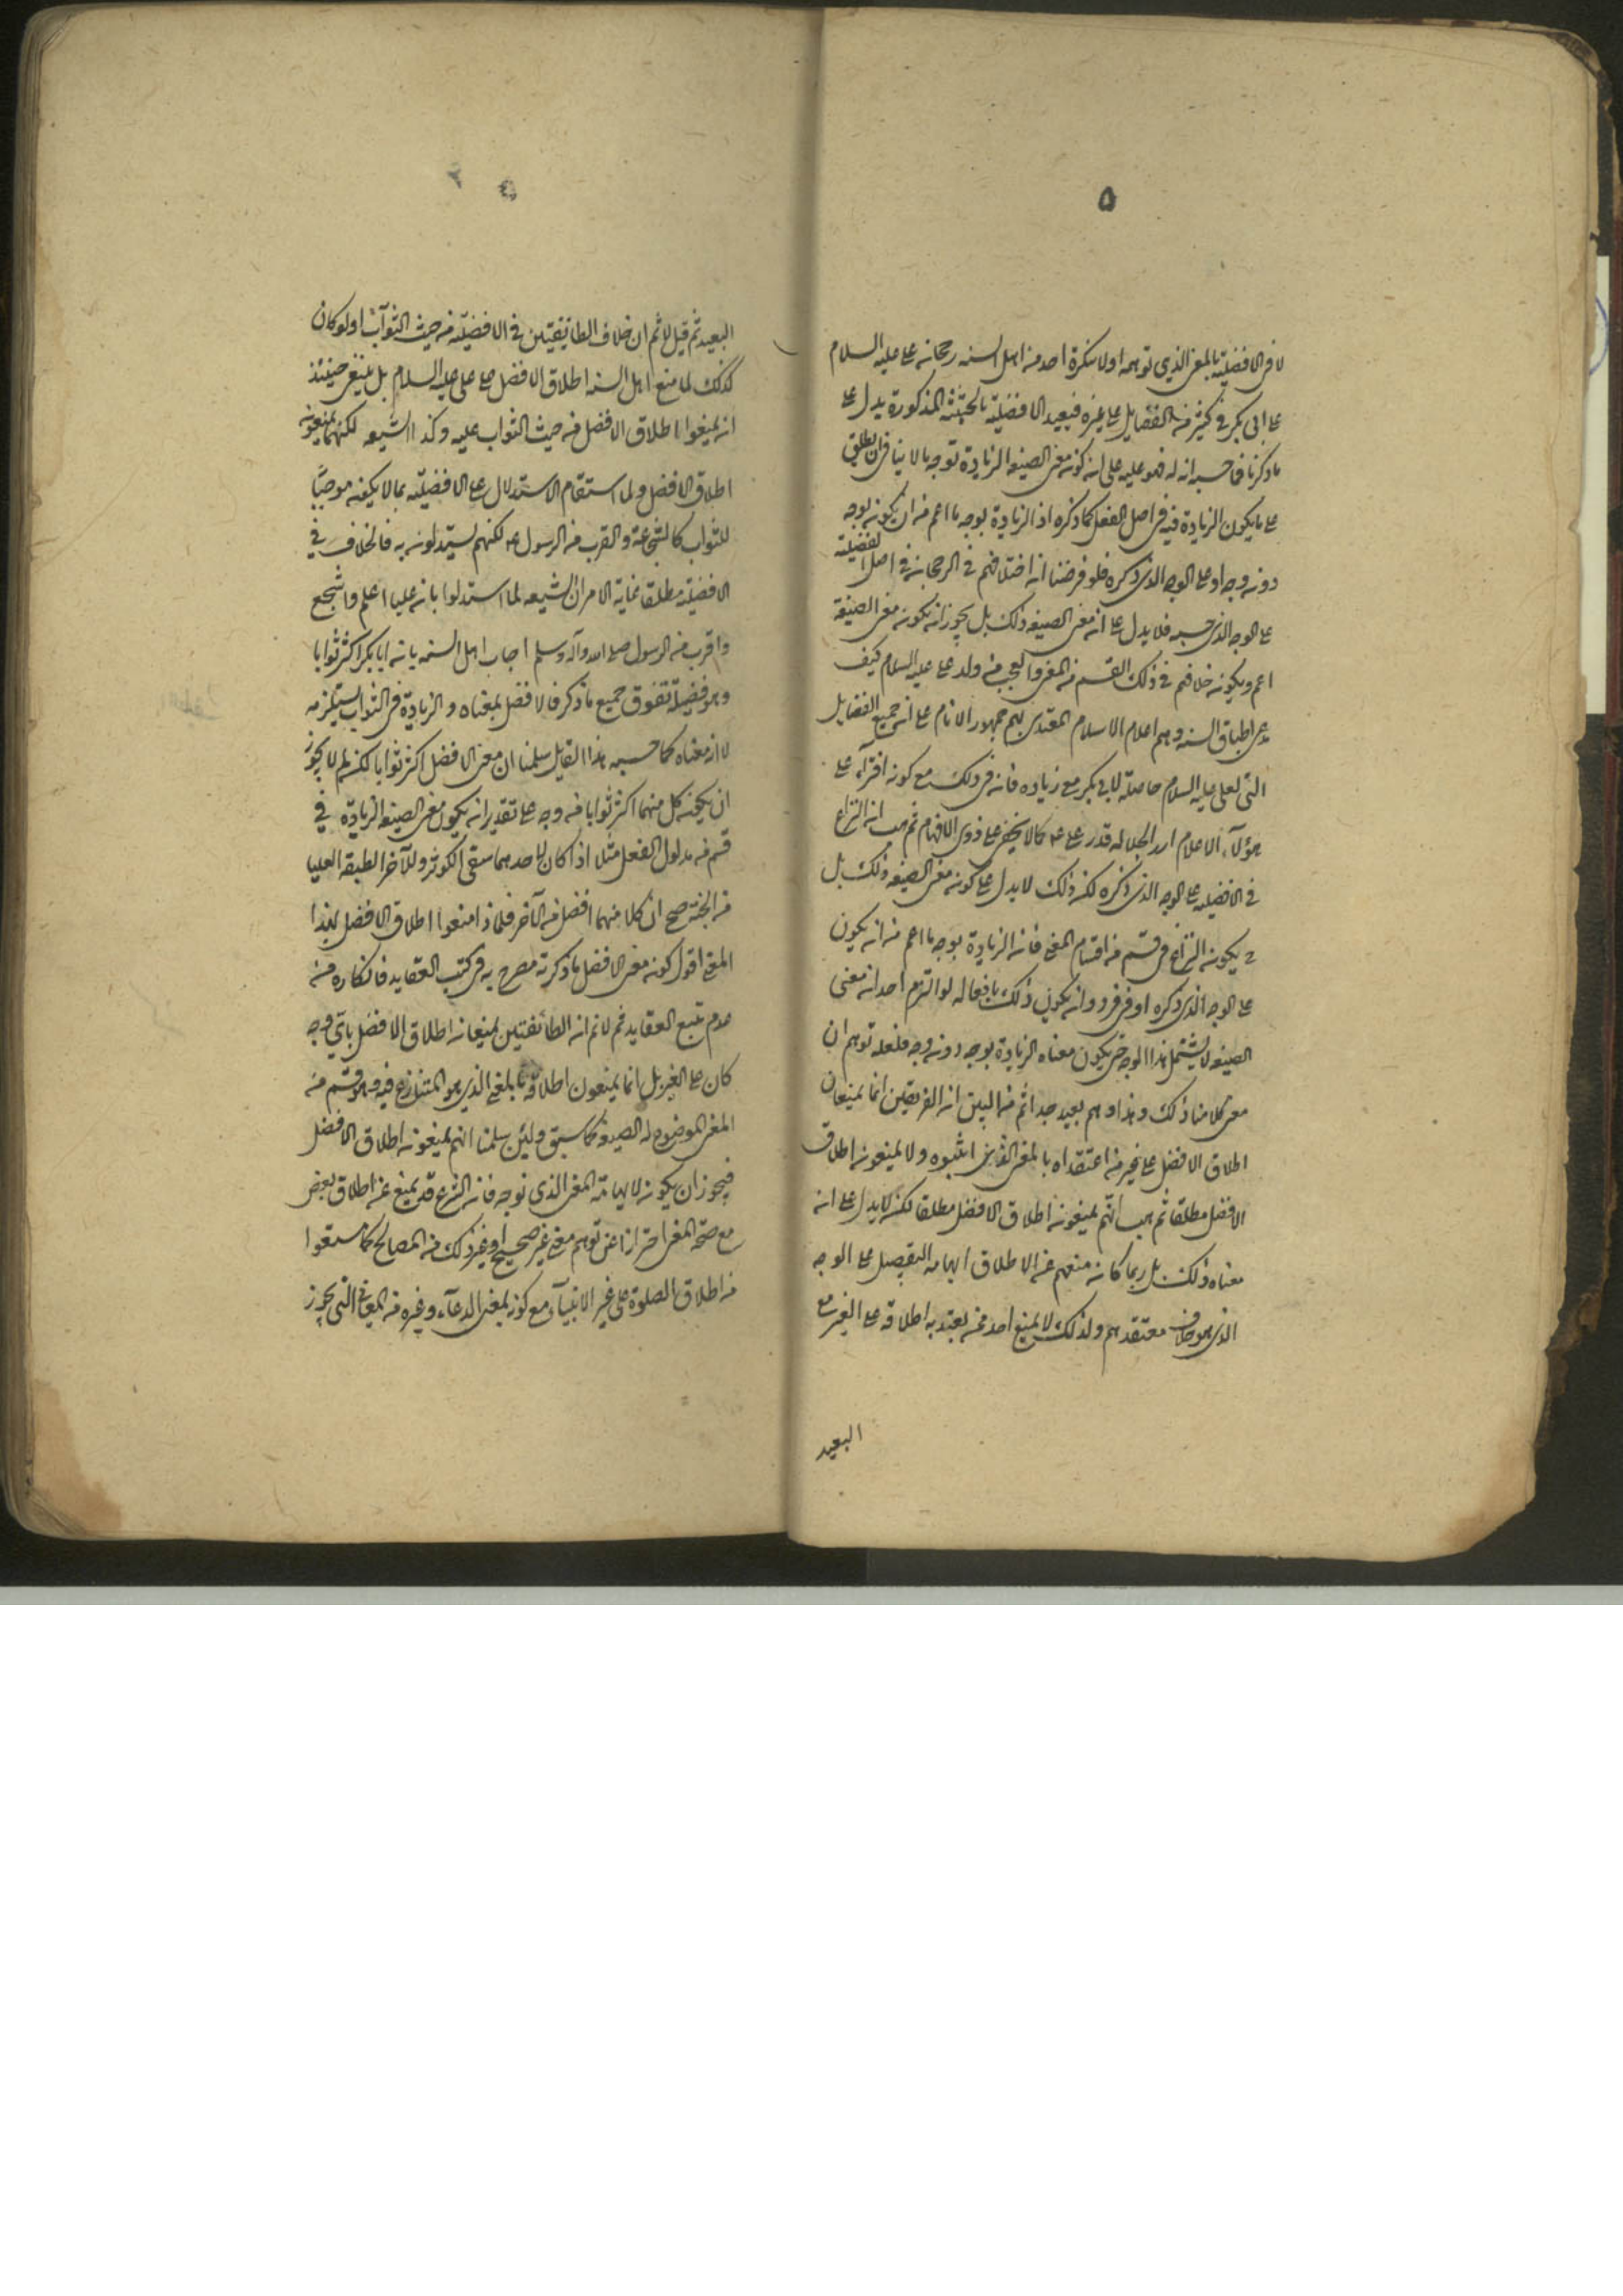 ۵
لا فى الافضلية بالمعنى الذي توهمه اولا ينكره احد من اهل السنه رجحان على عليه السلام
على ابى بكر فى كثير من الفضايل على غيره فتقييد الافضلية بالحيثية المذكورة يدل على
ما ذكرنا فما حسبه انه له فهو عليه على ان كون معنى الصيغه الزيادة بوجه ما لا ينافى ان يطلق
على ما يكون الزيادة فيه فى اصل الفعل كما ذكره اذ الزيادة بوجه ما اعم من ان يكون بوجه
دون وجه او على الوجه الذى ذكره فلو فرضنا ان اختلافهم فى الرجحان فى اصل الفضيلة
على الوجه الذى حسبه فلا يدل على ان معنى الصيغه ذلك بل يجوز ان يكون معنى الصيغة
اعم ويكون خلافهم فى ذلك القسم من المعنى والعجب من ولد على عليه السلام كيف
يدعى اطباق السنه وهم اعلام الاسلام المقتدى بهم جمهور الانام على ان جميع الفضايل
التى لعلى عليه السلام حاصلة لابى بكر مع زياده فان فى ذلك مع كونه افتراء على
هؤلآء الاعلام ازراء بجلالة قدر على ع كما لا يخفى على ذوى الافهام ثم هب ان النزاع
فى الافضليه على الوجه الذى ذكره لكن ذلك لا يدل على كون معنى الصيغه ذلك بل
يكون النزاع فى قسم من اقسام المعنى فان الزيادة بوجه ما اعم من ان يكون
على الوجه الذى ذكره او فى فرد وان يكون ذلك لو التزم احد ان معنى
الصيغه لا يشتمل هذا الوجه حتى يكون معناه الزيادة بوجه دون وجه فلعله توهم ان
معنى كلامنا ذلك وهذا وهم بعيد جدا ثم من البين ان الفريقين انما يمنعان
اطلاق الافضل على غير من اعتقداه بالمعنى الذى اثبتوه ولا يمنعون اطلاق
الافضل مطلقا ثم هب انهم يمنعون اطلاق الافضل مطلقا لكنه لا يدل على ان
معناه ذلك بل ربما كان منعهم عن الاطلاق ايهامه التفضيل على الوجه
الذى هو خلاف معتقدهم ولذلك لا يمنع احد ممن يعتد به اطلاقه على الغير مع
البعيد
البعيد ثم قيل لا ثم ان خلاف الطائفتين فى الافضليه من حيث الثوآب اولو كان
كذلك لما منع اهل السنه اطلاق الافضل على على عليه السلام بل ينبغى حينئذ
ان يمنعوا اطلاق الافضل من حيث الثواب عليه وكذا الشيعه لكنهما يمنعون
اطلاق الافضل ولما استقام الاستدلال على الافضليه بما لا يكون موجبًا
للثواب كالشجاعة والقرب من الرسول ع لكنهم يستدلون به فالخلاف فى
الافضلية مطلقا غاية الامر ان الشيعه لما استدلوا بان عليا اعلم واشجع
واقرب من الرسول صلى الله وآله وسلم اجاب اهل السنه بان ابا بكر اكثر ثوابا
وهو فضيلة تفوق جميع ما ذكر فالافضل بمعناه والزيادة فى الثواب يستلزمه
لا انه معناه كما حسبه هذا القايل سلمنا ان معنى الافضل اكثر ثوابا لكن لم لا يجوز
ان يكون كل منهما اكثر ثوابا من وجه على تقدير ان يكون معنى الصيغه الزيادة فى
قسم من مدلول الفعل مثلا اذا كان لاحدهما سقى الكوثر وللآخر الطبقة العليا
من الجنة صح ان كلا منهما افضل من الآخر فلماذا منعوا اطلاق الافضل بهذا
المعنى اقول كون معنى الافضل ما ذكرته مصرح به فى كتب العقايد فانكاره من
عدم تتبع العقايد ثم لانم ان الطائفتين يمنعان اطلاق الافضل باى وجه
كان على الغير بل انما يمنعون اطلاقه بالمعنى الذي هو المتنازع فيه وهو قسم من
المعنى الموضوع له الصيغه كما سبق ولئن سلمنا انهم يمنعون اطلاق الافضل
فيجوز ان يكون لايهامه المعنى الذى نوجه فان الشرع قد يمنع عن اطلاق بعض
مع صحة المعنى احترازا عن توهم معنى غير صحيح او غير ذلك من المصالح كما منعوا
من اطلاق الصلوة على غير الانبيآء مع كونه بمعنى الدعآء وغيره من المعانى التى يجوز